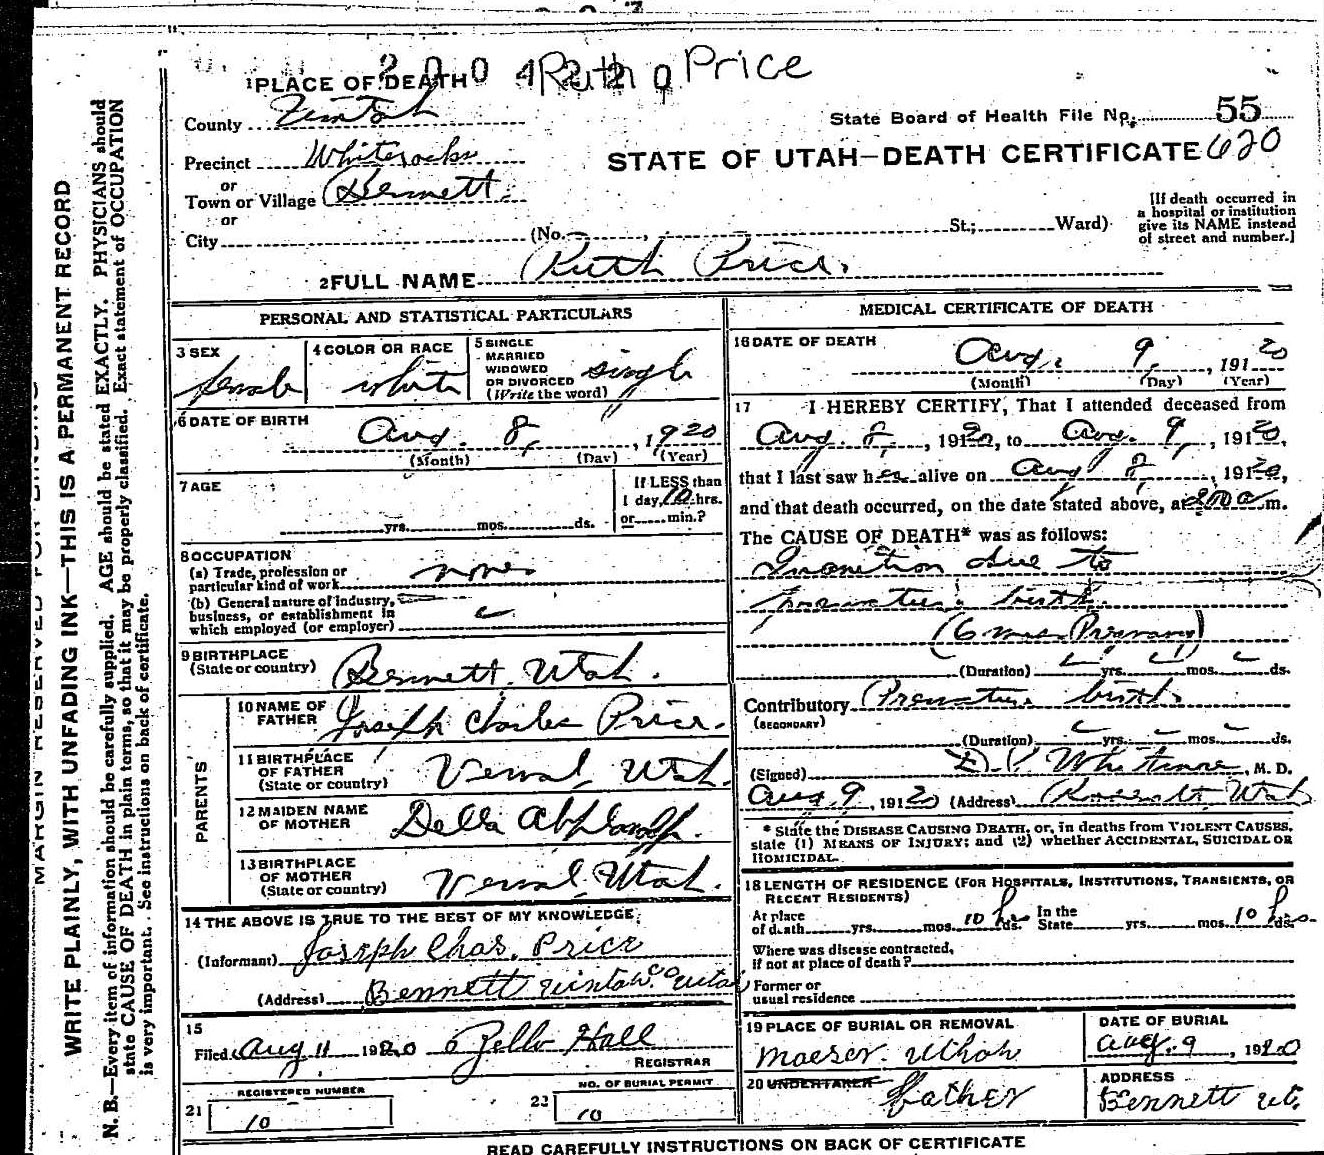 2 0 0 4 2 2 0 Ruth Price
1 PLACE OF DEATH
County Uintah
State Board of Health File No. 55
Precinct Whiterocks
STATE OF UTAH—DEATH CERTIFICATE 620
or
Town or Village Bennett.
or
City (No. , St.; Ward)
[If death occurred in
a hospital or institution
give its NAME instead
of street and number.]
2 FULL NAME Ruth Price.
PERSONAL AND STATISTICAL PARTICULARS
3 SEX female
4 COLOR OR RACE white
5 SINGLE
MARRIED
WIDOWED
OR DIVORCED
(Write the word) single
6 DATE OF BIRTH Aug. 8, 1920
(Month) (Day) (Year)
7 AGE
yrs. mos. ds.
If LESS than
1 day, 10 hrs.
or min.?
8 OCCUPATION
(a) Trade, profession or
particular kind of work none
(b) General nature of industry,
business, or establishment in
which employed (or employer)
9 BIRTHPLACE
(State or country) Bennett, Utah.
PARENTS
10 NAME OF
FATHER Joseph Charles Price.
11 BIRTHPLACE
OF FATHER
(State or country) Vernal, Utah.
12 MAIDEN NAME
OF MOTHER Della
13 BIRTHPLACE
OF MOTHER
(State or country) Vernal, Utah.
14 THE ABOVE IS TRUE TO THE BEST OF MY KNOWLEDGE
(Informant) Joseph Chas. Price
(Address) Bennett Uintah Co. Utah
15
Filed Aug 11 1920 Zella Hall
REGISTRAR
REGISTERED NUMBER
21 10
NO. OF BURIAL PERMIT
22 10
MEDICAL CERTIFICATE OF DEATH
16 DATE OF DEATH
Aug. 9, 191 20
(Month) (Day) (Year)
17 I HEREBY CERTIFY, That I attended deceased from
Aug. 8, 1920, to Aug. 9, 1920,
that I last saw her alive on Aug 8, 1920,
and that death occurred, on the date stated above, at 200 a m.
The CAUSE OF DEATH* was as follows:
Inanition due to
premature birth.
(6 mos
(Duration) yrs. mos. ds.
Contributory Premature birth
(SECONDARY)
(Duration) yrs. mos. ds.
(Signed) Whitmore, M. D.
Aug 9, 1920 (Address) Roosevelt, Utah
* State the DISEASE CAUSING DEATH, or, in deaths from VIOLENT CAUSES,
state (1) MEANS OF INJURY; and (2) whether ACCIDENTAL, SUICIDAL OR
HOMICIDAL.
18 LENGTH OF RESIDENCE (FOR HOSPITALS, INSTITUTIONS, TRANSIENTS, OR
RECENT RESIDENTS)
At place
of death yrs. mos. 10 hrs ds.
In the
State yrs. mos. 10 hrs ds.
Where was disease contracted,
if not at place of death?
Former or
usual residence
19 PLACE OF BURIAL OR REMOVAL
Maeser. Uthah
DATE OF BURIAL
Aug. 9, 1920
20 UNDERTAKER
father
ADDRESS
Bennett ut.
READ CAREFULLY INSTRUCTIONS ON BACK OF CERTIFICATE
MARGIN RESERVED FOR BINDING
WRITE PLAINLY, WITH UNFADING INK—THIS IS A PERMANENT RECORD
N. B.—Every item of information should be carefully supplied. AGE should be stated EXACTLY. PHYSICIANS should
state CAUSE OF DEATH in plain terms, so that it may be properly classified. Exact statement of OCCUPATION
is very important. See instructions on back of certificate.